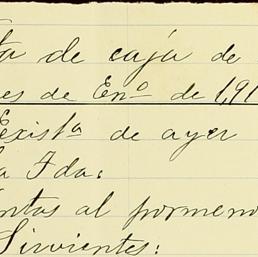 ta de caja de
es de En.º de 1,91
Exist.ª de ayer
a Ida:
ntas al pormeno
Sirvientes: